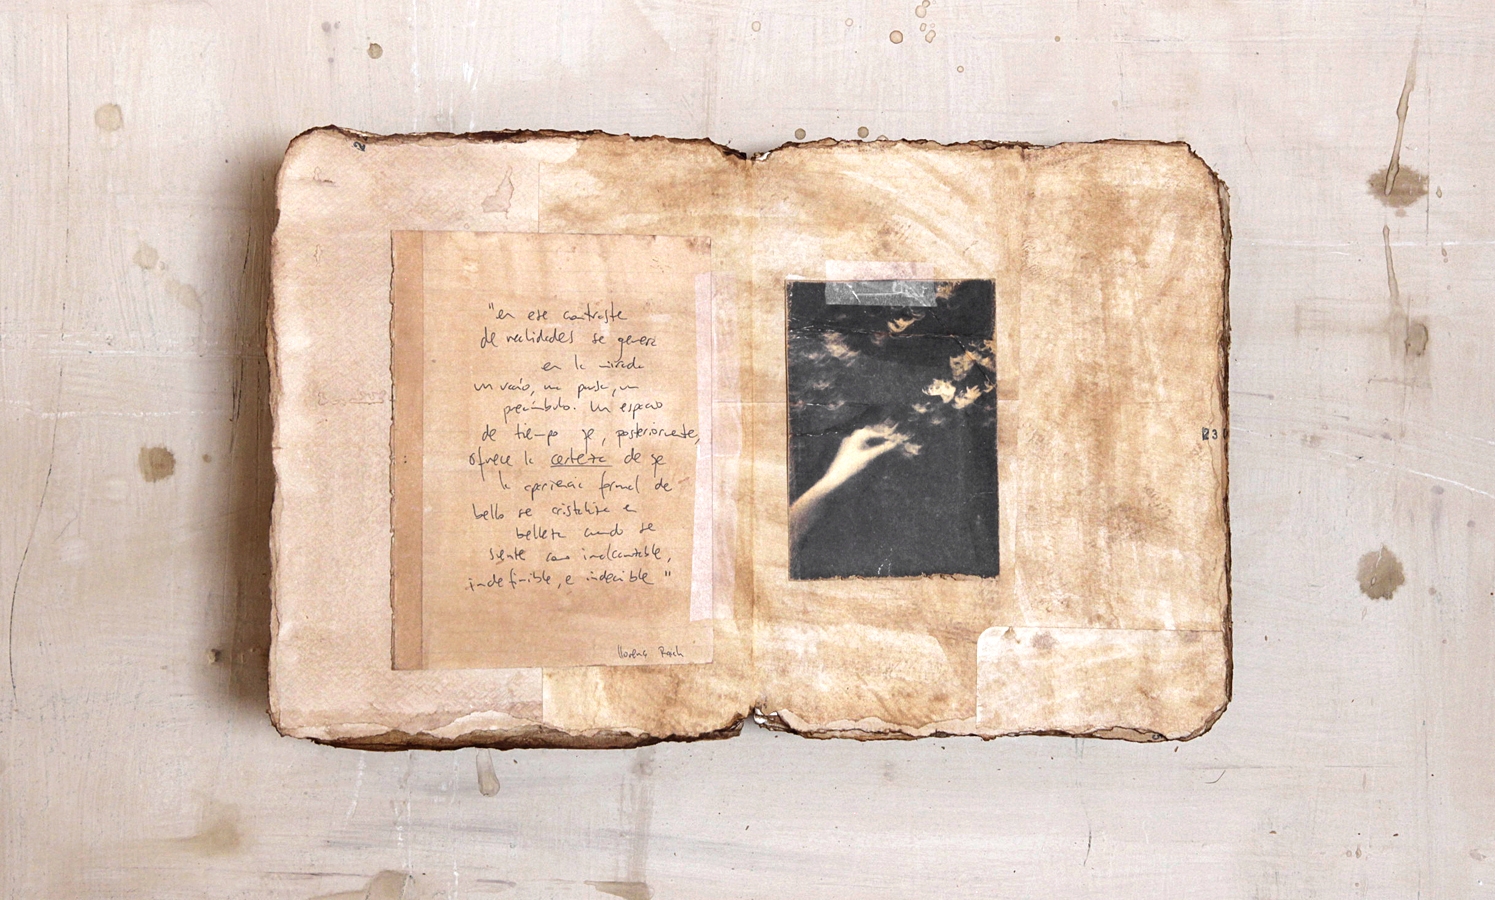 "en ese contraste
de realidades se genera
en la mirada
un vacío, una pausa, un
preámbulo. Un espacio
de tiempo que, posteriormente,
ofrece la certeza de que
la experiencia formal de
bello se cristaliza en
belleza cuando se
siente como inalcanzable,
indefinible, e indecible"
llorenç Raich